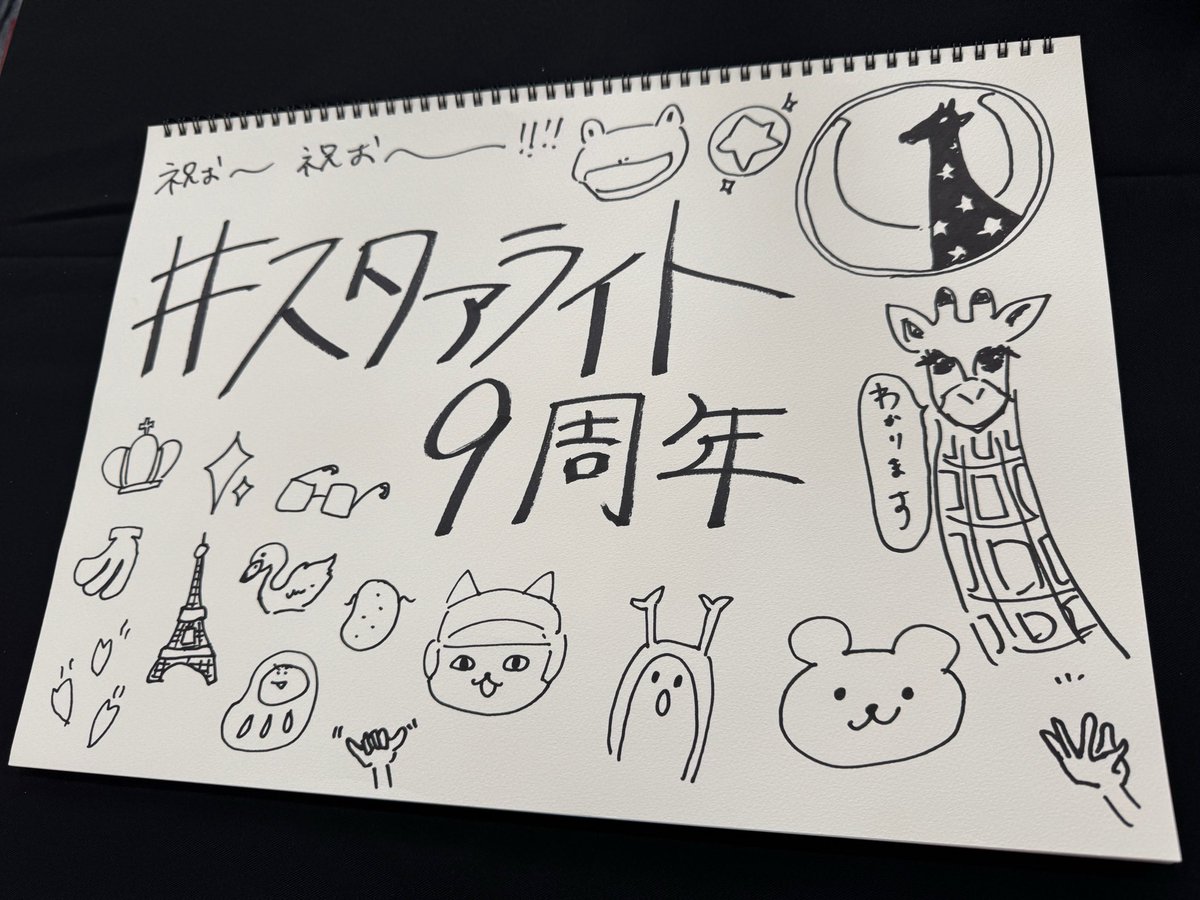 祝お〜 祝お〜!!!!
#スタァライト
9周年
わかります